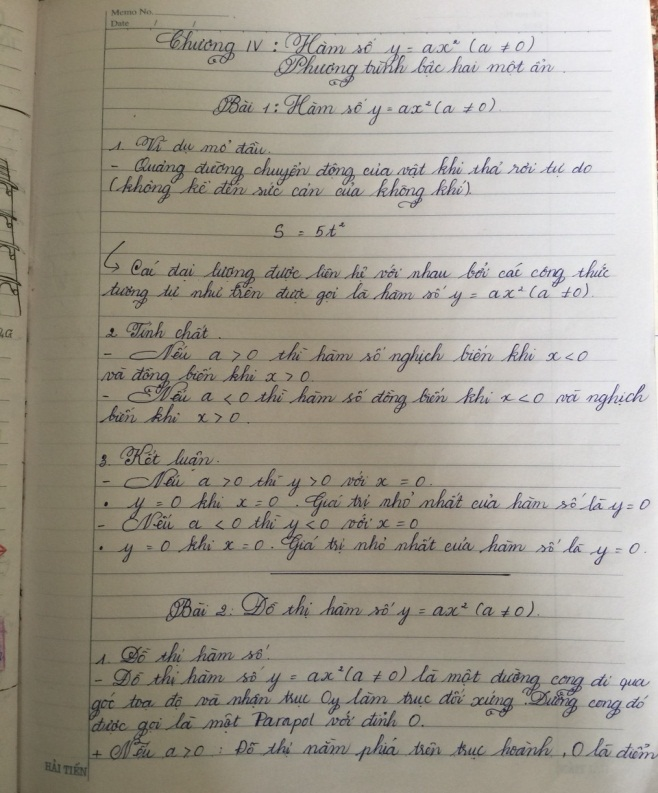 Memo No.
Date / /
Chương IV : Hàm số y = ax² (a ≠ 0)
Phương trình bậc hai một ẩn.
Bài 1: Hàm số y = ax² (a ≠ 0)
1. Ví dụ mở đầu.
- Quãng đường chuyển động của vật khi thả rơi tự do
(không kể đến sức cản của không khí)
S = 5t²
↳ Các đại lượng được liên hệ với nhau bởi các công thức
tương tự như trên được gọi là hàm số y = ax² (a ≠ 0).
2. Tính chất.
- Nếu a > 0 thì hàm số nghịch biến khi x < 0
và đồng biến khi x > 0.
- Nếu a < 0 thì hàm số đồng biến khi x < 0 và nghịch
biến khi x > 0.
3. Kết luận.
- Nếu a > 0 thì y > 0 với x = 0.
• y = 0 khi x = 0. Giá trị nhỏ nhất của hàm số là y = 0
- Nếu a < 0 thì y < 0 với x = 0
• y = 0 khi x = 0. Giá trị nhỏ nhất của hàm số là y = 0.
Bài 2: Đồ thị hàm số y = ax² (a ≠ 0).
1. Đồ thị hàm số.
- Đồ thị hàm số y = ax² (a ≠ 0) là một đường cong đi qua
gốc tọa độ và nhận trục Oy làm trục đối xứng. Đường cong đó
được gọi là một Parapol với đỉnh O.
+ Nếu a > 0 : Đồ thị nằm phía trên trục hoành, O là điểm
HẢI TIẾN